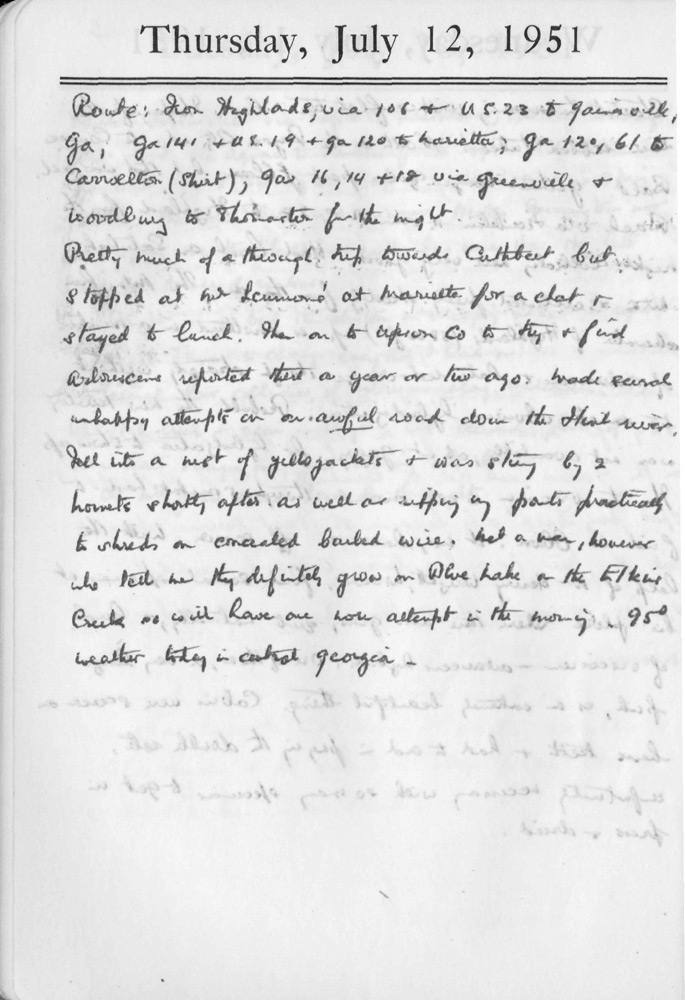 Thursday, July 12, 1951
Route: From Highlands, via 106 + U.S. 23 to Gainsville,
Ga; Ga 141 + U.S. 19 + Ga 120 to Marietta; Ga 120, 61 to
Carrollton (Shirt), Gas 16, 14 + 18 via Greenville &
Woodbury to Thomaston for the night.
Pretty much of a through trip towards Cuthbert but
stopped at Mr at Marietta for a chat &
stayed to lunch. Then on to Upson Co to try & find
arborescens reported there a year or two ago. Made several
unhappy attempts on an awful road down the Flint river.
Fell into a nest of yellojackets & was stung by 2
hornets shortly after as well as ripping my pants practically
to shreds on concealed barbed wire. Met a man, however
who tell me they definitely grow on Blue Lake on the Elkins
Creek so will have one more attempt in the morning. 95°
weather today in central Georgia -